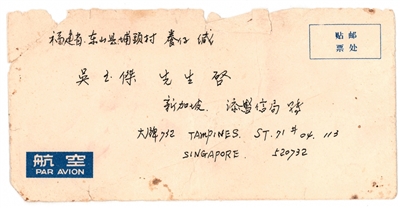 福建省东山县埔頭村 養仔 缄
贴 邮
票 处
吳玉傑 先生 啓
新加坡
大牌712 TAMPINES. ST. 71 # 04. 113
SINGAPORE. 520712
航空
PAR AVION